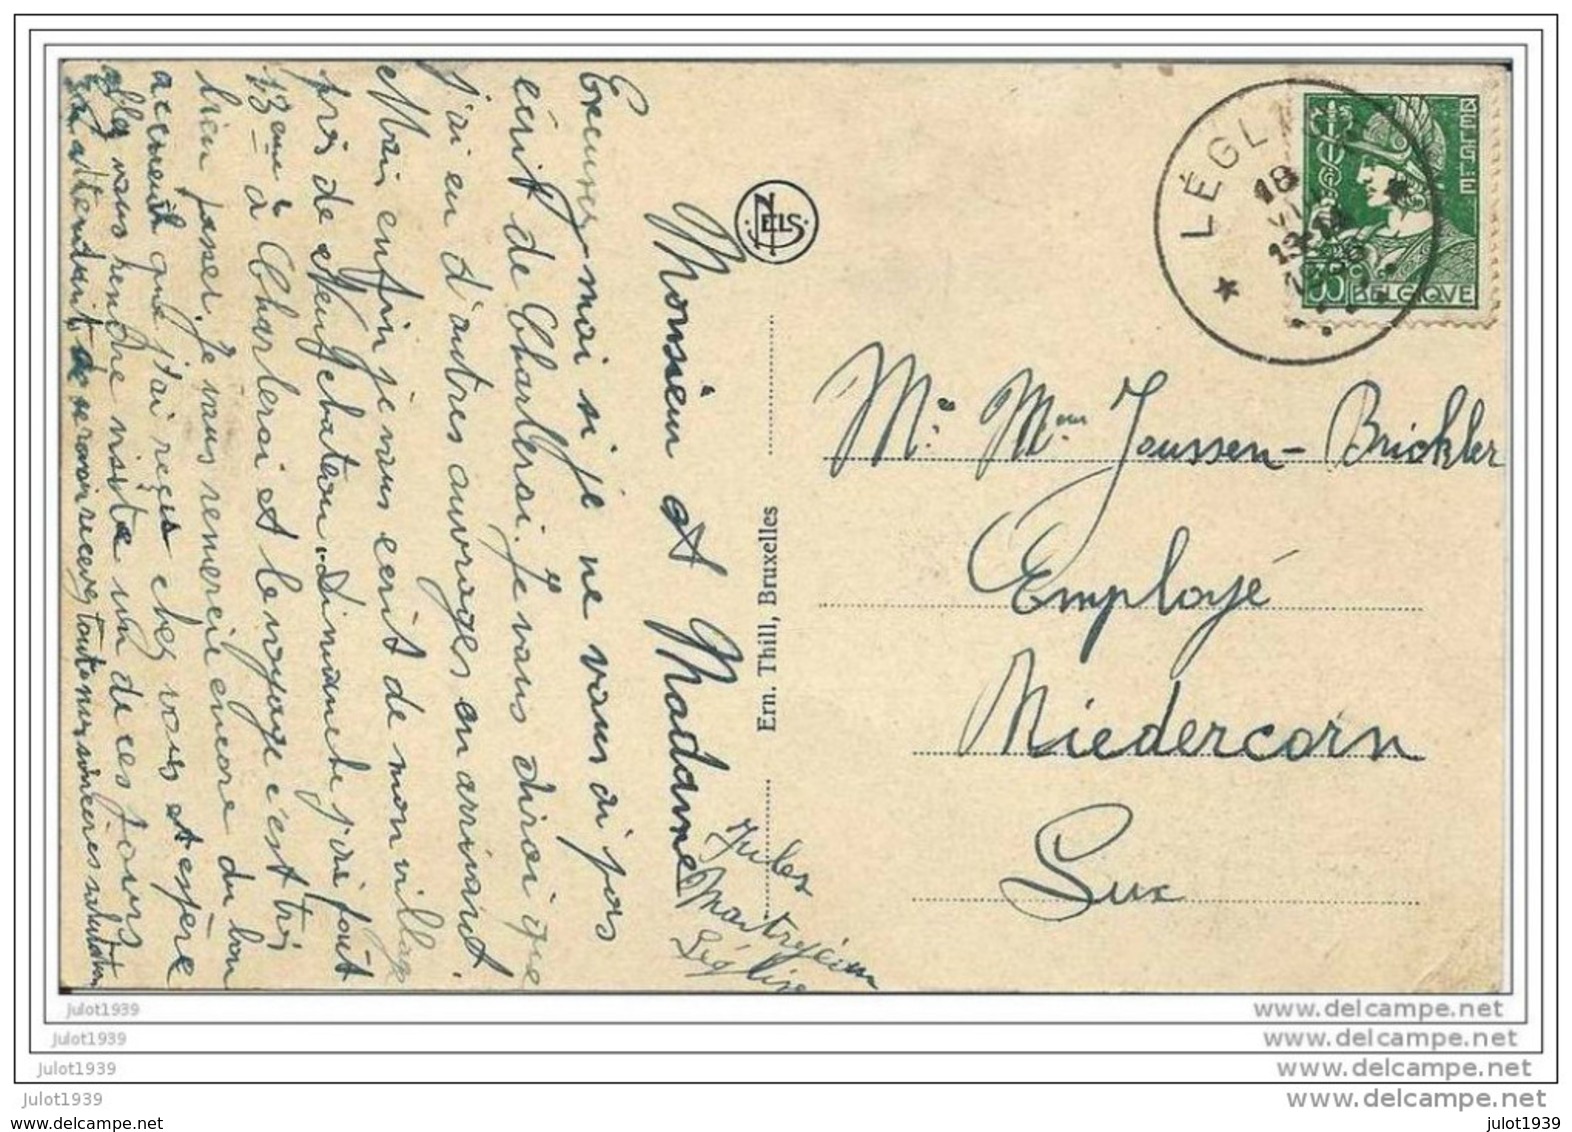 Monsieur et Madame
Excusez-moi si je ne vous ai pas
écrit de Charleroi. Je vous dirai que
j'ai eu d'autres ouvrages en arrivant.
Mais enfin je vous écrit de mon village
près de Neufchateau. Dimanche j'ai fait
13 à Charleroi et le voyage c'est très
bien passer. Je vous remercie encore du bon
accueuil que j'ai reçus chez vous et espère
allez vous rendre visite un de ces jours
En attendant de se revoir recevez toute mes sincères salutation
Jules
Léglise
NELS
Ern. Thill, Bruxelles
LÉGL
18
BELGIË
35c
BELGIQUE
Mr. Mme Joussen-Brickler
Employé
Niedercorn
Lux
julot1939
www.delcampe.net
julot1939
www.delcampe.net
julot1939
www.delcampe.net
julot1939
www.delcampe.net
www.delcampe.net
julot1939